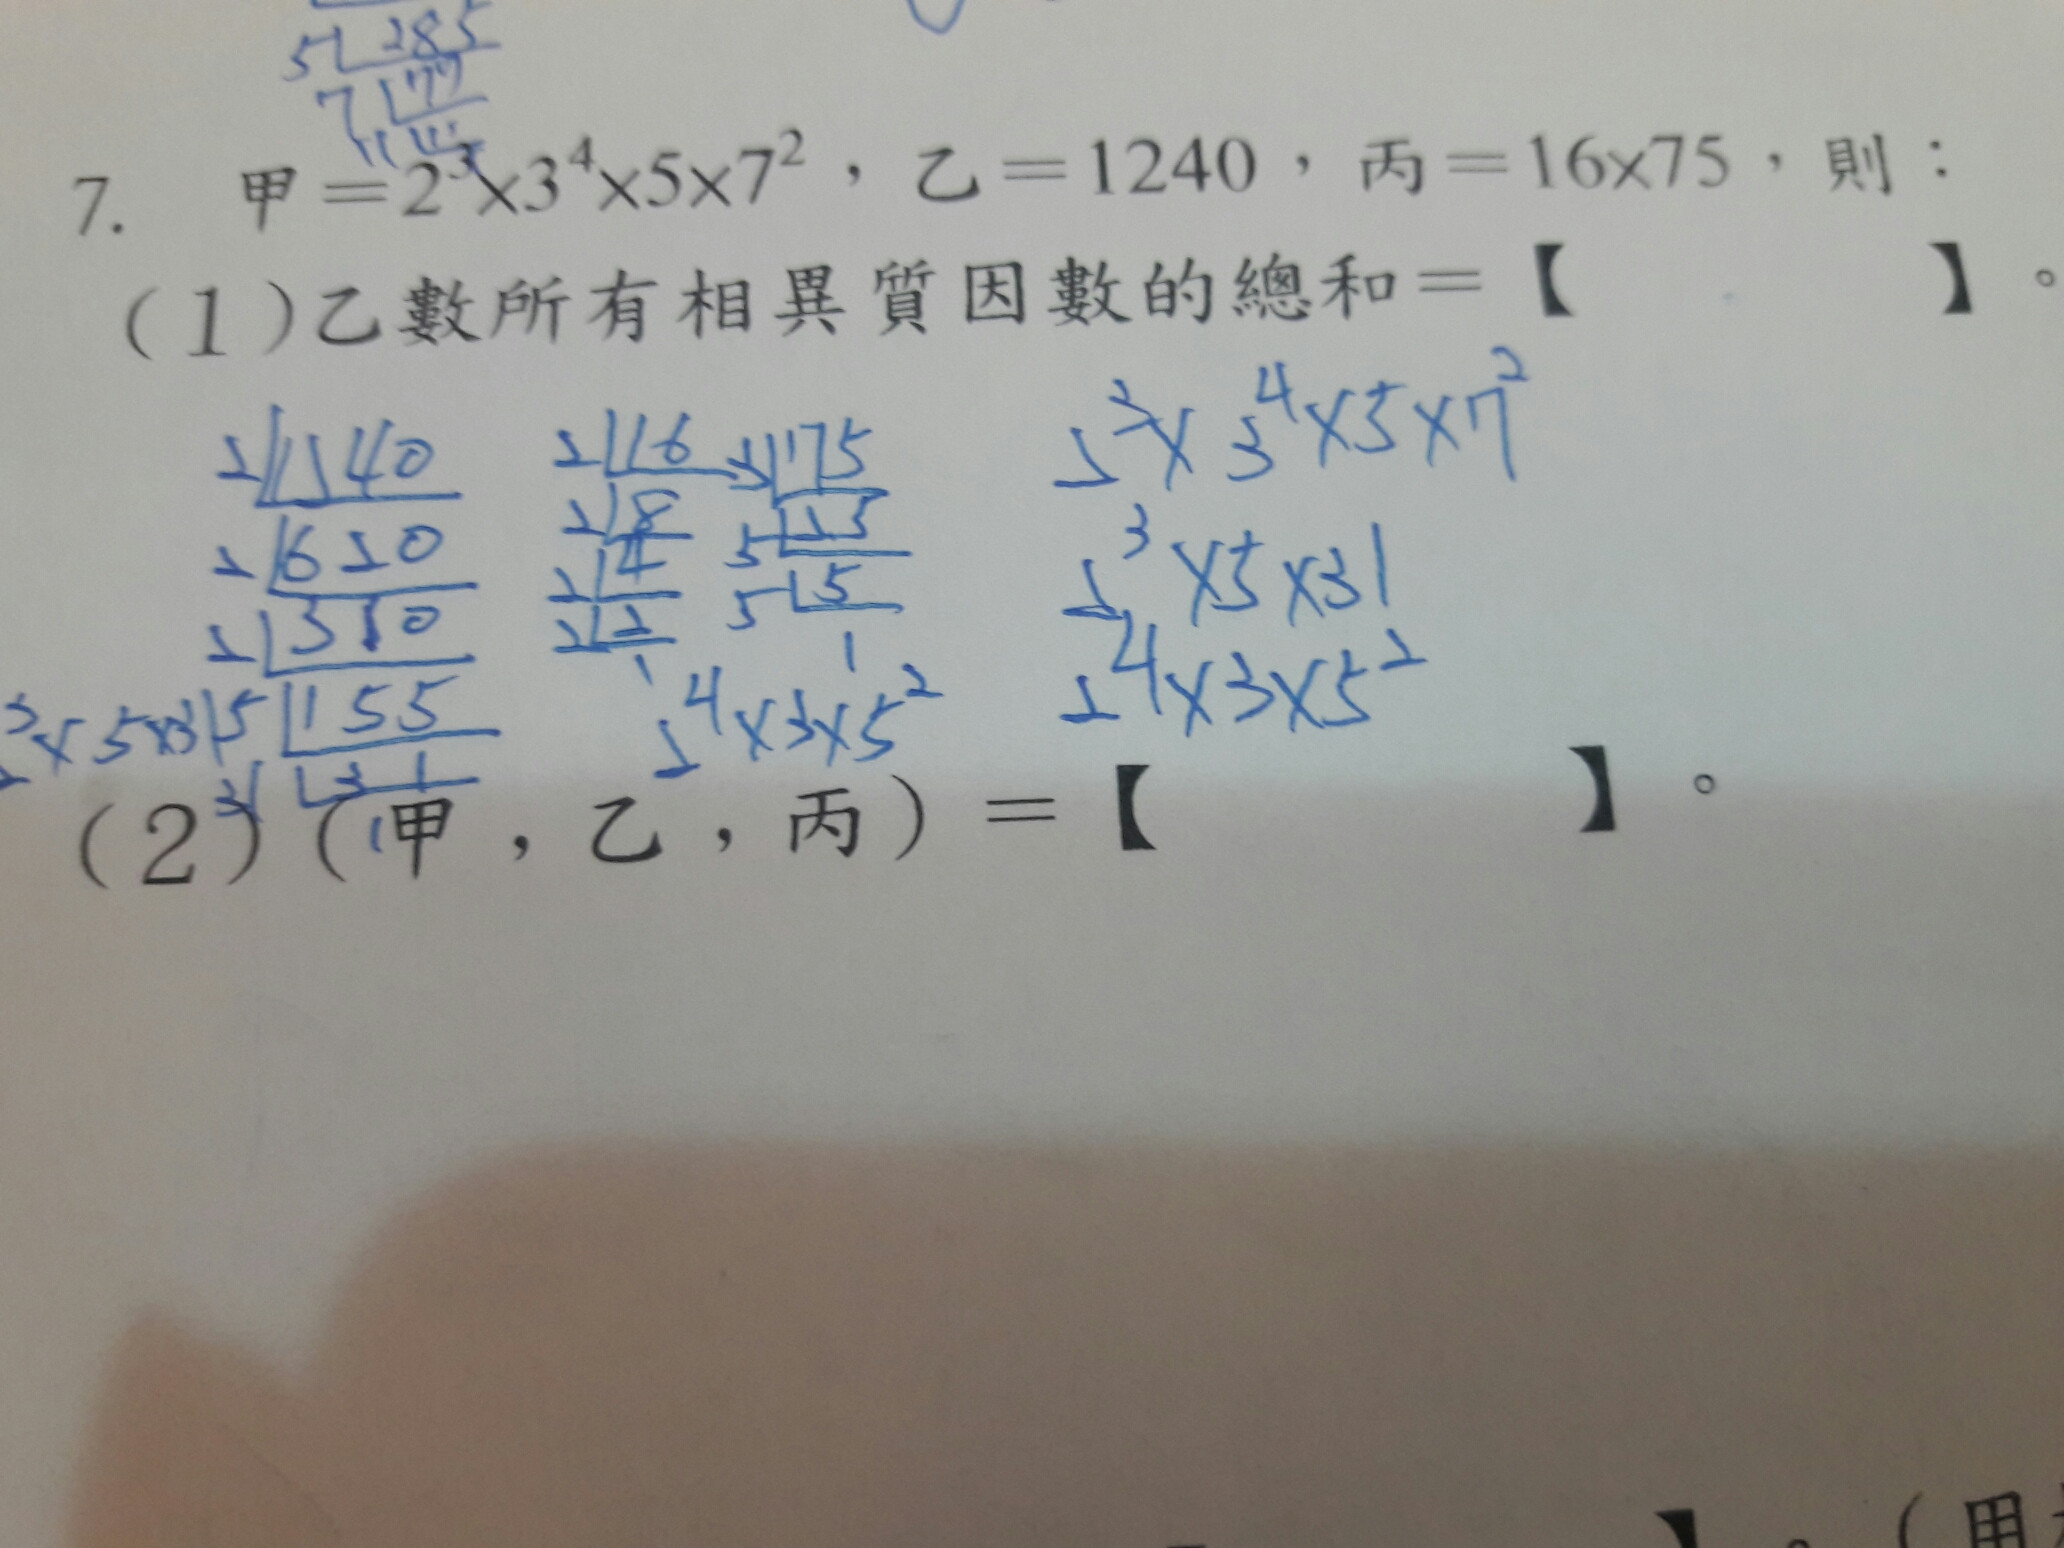 5 285
7 77
11 11
7. 甲=2³×3⁴×5×7²，乙=1240，丙=16×75，則：
(1)乙數所有相異質因數的總和=【 】。
2 1240
2 620
2 310
5 155
31 31
1
2³×5×31
2 16
2 8
2 4
2 2
1
3 75
5 25
5 5
1
2⁴×3×5²
2³×3⁴×5×7²
2³×5×31
2⁴×3×5²
(2)(甲，乙，丙)=【 】。
】。(甲